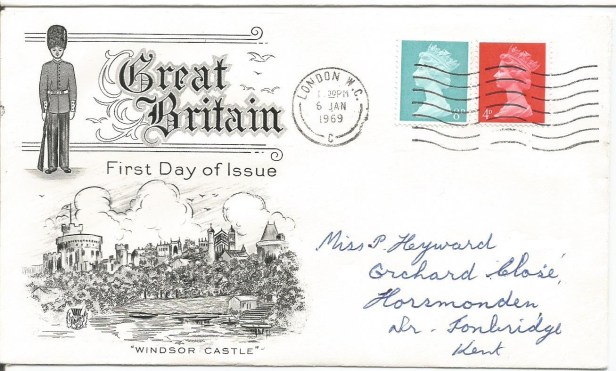 Great
Britain
First Day of Issue
"WINDSOR CASTLE"
LONDON W.C.
30PM
6 JAN
1969
C
8d
4d
Miss P. Heyward
Orchard Close,
Horsmonden
Nr. Tonbridge
Kent